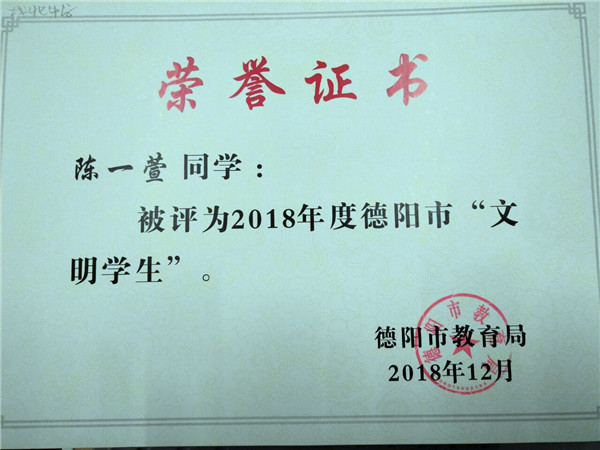 荣誉证书
陈一萱 同学：
被评为2018年度德阳市“文
明学生”。
德阳市教育局
2018年12月
德阳市教育局